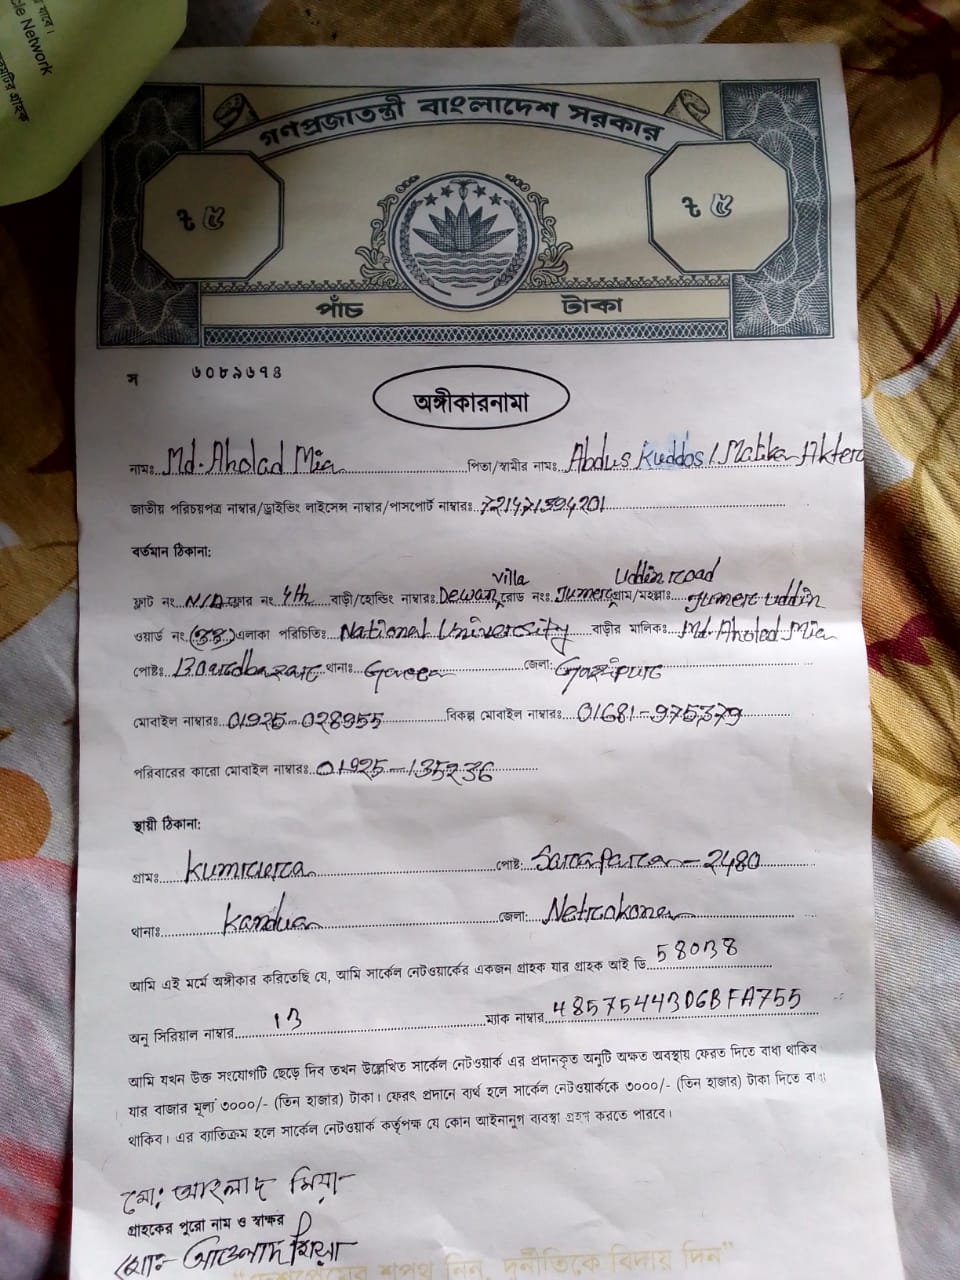 যাবে।
cle Network
গ্রাহক
গণপ্রজাতন্ত্রী বাংলাদেশ সরকার
৳ ৫ ৳ ৫
পাঁচ টাকা
স ৬০৮৯৬৭৪
অঙ্গীকারনামা
নামঃ Md. Aholad Mia পিতা/স্বামীর নামঃ Abdus Kuddos / Matika Akter
জাতীয় পরিচয়পত্র নাম্বার/ড্রাইভিং লাইসেন্স নাম্বার/পাসপোর্ট নাম্বারঃ 721471394201
বর্তমান ঠিকানা:
Villa Uddin road
ফ্লাট নং N/A ফ্লোর নং 4th বাড়ী/হোল্ডিং নাম্বারঃ Dewan রোড নংঃ Jumer গ্রাম/মহল্লাঃ Jumer Uddin
ওয়ার্ড নং এলাকা পরিচিতিঃ National University বাড়ীর মালিকঃ Md. Aholad Mia
পোষ্টঃ Boardbazar থানাঃ জেলা: Gazipur
মোবাইল নাম্বারঃ 01925-028955 বিকল্প মোবাইল নাম্বারঃ 01681-975379
পরিবারের কারো মোবাইল নাম্বারঃ 01925-135236
স্থায়ী ঠিকানা:
গ্রামঃ Kumrura পোষ্ট: Sarapara-2480
থানাঃ Kandua জেলা: Netrokona
আমি এই মর্মে অঙ্গীকার করিতেছি যে, আমি সার্কেল নেটওয়ার্কের একজন গ্রাহক যার গ্রাহক আই ডি 58038
অনু সিরিয়াল নাম্বার 13 ম্যাক নাম্বার 48575443D6BFA755
আমি যখন উক্ত সংযোগটি ছেড়ে দিব তখন উল্লেখিত সার্কেল নেটওয়ার্ক এর প্রদানকৃত অনুটি অক্ষত অবস্থায় ফেরত দিতে বাধ্য থাকিব
যার বাজার মূল্য ৩০০০/- (তিন হাজার) টাকা। ফেরৎ প্রদানে ব্যর্থ হলে সার্কেল নেটওয়ার্ককে ৩০০০/- (তিন হাজার) টাকা দিতে বাধ্য
থাকিব। এর ব্যতিক্রম হলে সার্কেল নেটওয়ার্ক কর্তৃপক্ষ যে কোন আইনানুগ ব্যবস্থা গ্রহণ করতে পারবে।
মো: আহলাদ মিয়া
গ্রাহকের পুরো নাম ও স্বাক্ষর
মোঃ আহলাদ মিয়া
"দেশপ্রেমের শপথ নিন, দুর্নীতিকে বিদায় দিন"